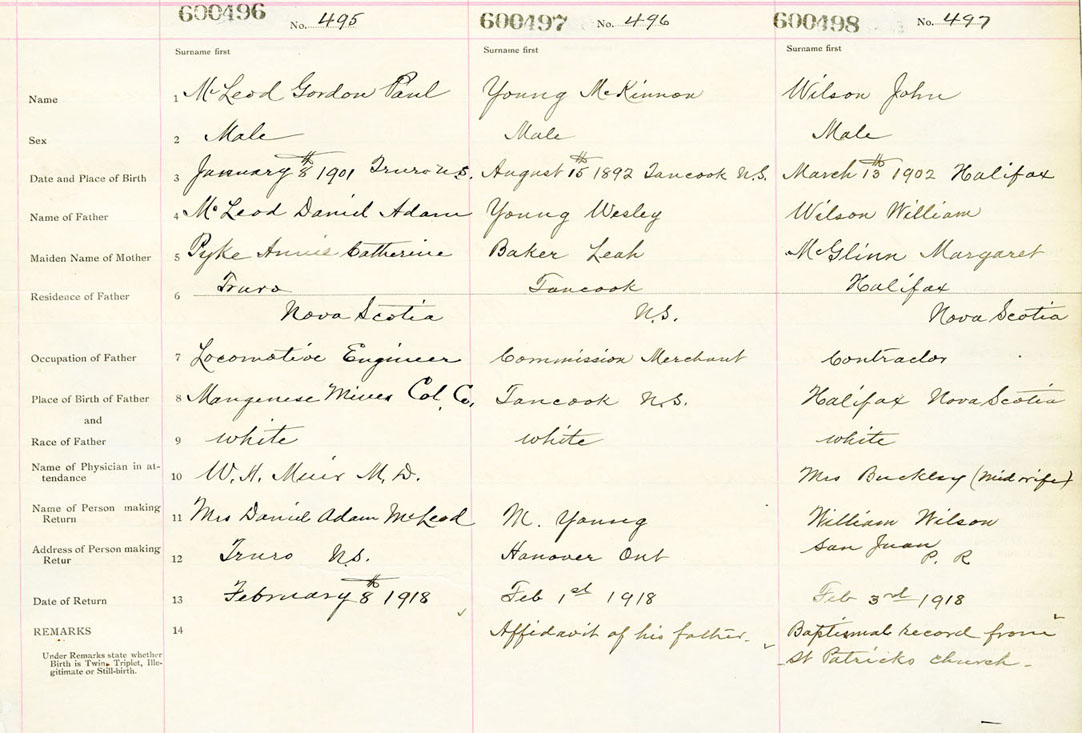 600496 No. 495 600497 No. 496 600498 No. 497
Surname first Surname first Surname first
Name 1 McLeod Gordon Paul Young McKinnon Wilson John
Sex 2 Male Male Male
Date and Place of Birth 3 January 8th 1901 Truro N.S. August 15th 1892 Tancook N.S. March 13th 1902 Halifax
Name of Father 4 McLeod Daniel Adam Young Wesley Wilson William
Maiden Name of Mother 5 Pyke Annie Catherine Baker Leah McGlinn Margaret
Residence of Father 6 Truro Tancook Halifax
Nova Scotia N.S. Nova Scotia
Occupation of Father 7 Locomotive Engineer Commission Merchant Contractor
Place of Birth of Father 8 Manganese Mines Col. Co. Tancook N.S. Halifax Nova Scotia
and
Race of Father 9 white white white
Name of Physician in at-
tendance 10 W. H. Muir M. D. Mrs Buckley (midwife)
Name of Person making
Return 11 Mrs Daniel Adam McLeod M. Young William Wilson
Address of Person making San Juan
Retur 12 Truro N.S. Hanover Ont P. R
Date of Return 13 February 8th 1918 Feb 1st 1918 Feb 3rd 1918
REMARKS 14 Affidavit of his father. Baptismal record from
Under Remarks state whether
Birth is Twin, Triplet, Ille- St Patricks church.
gitimate or Still-birth.